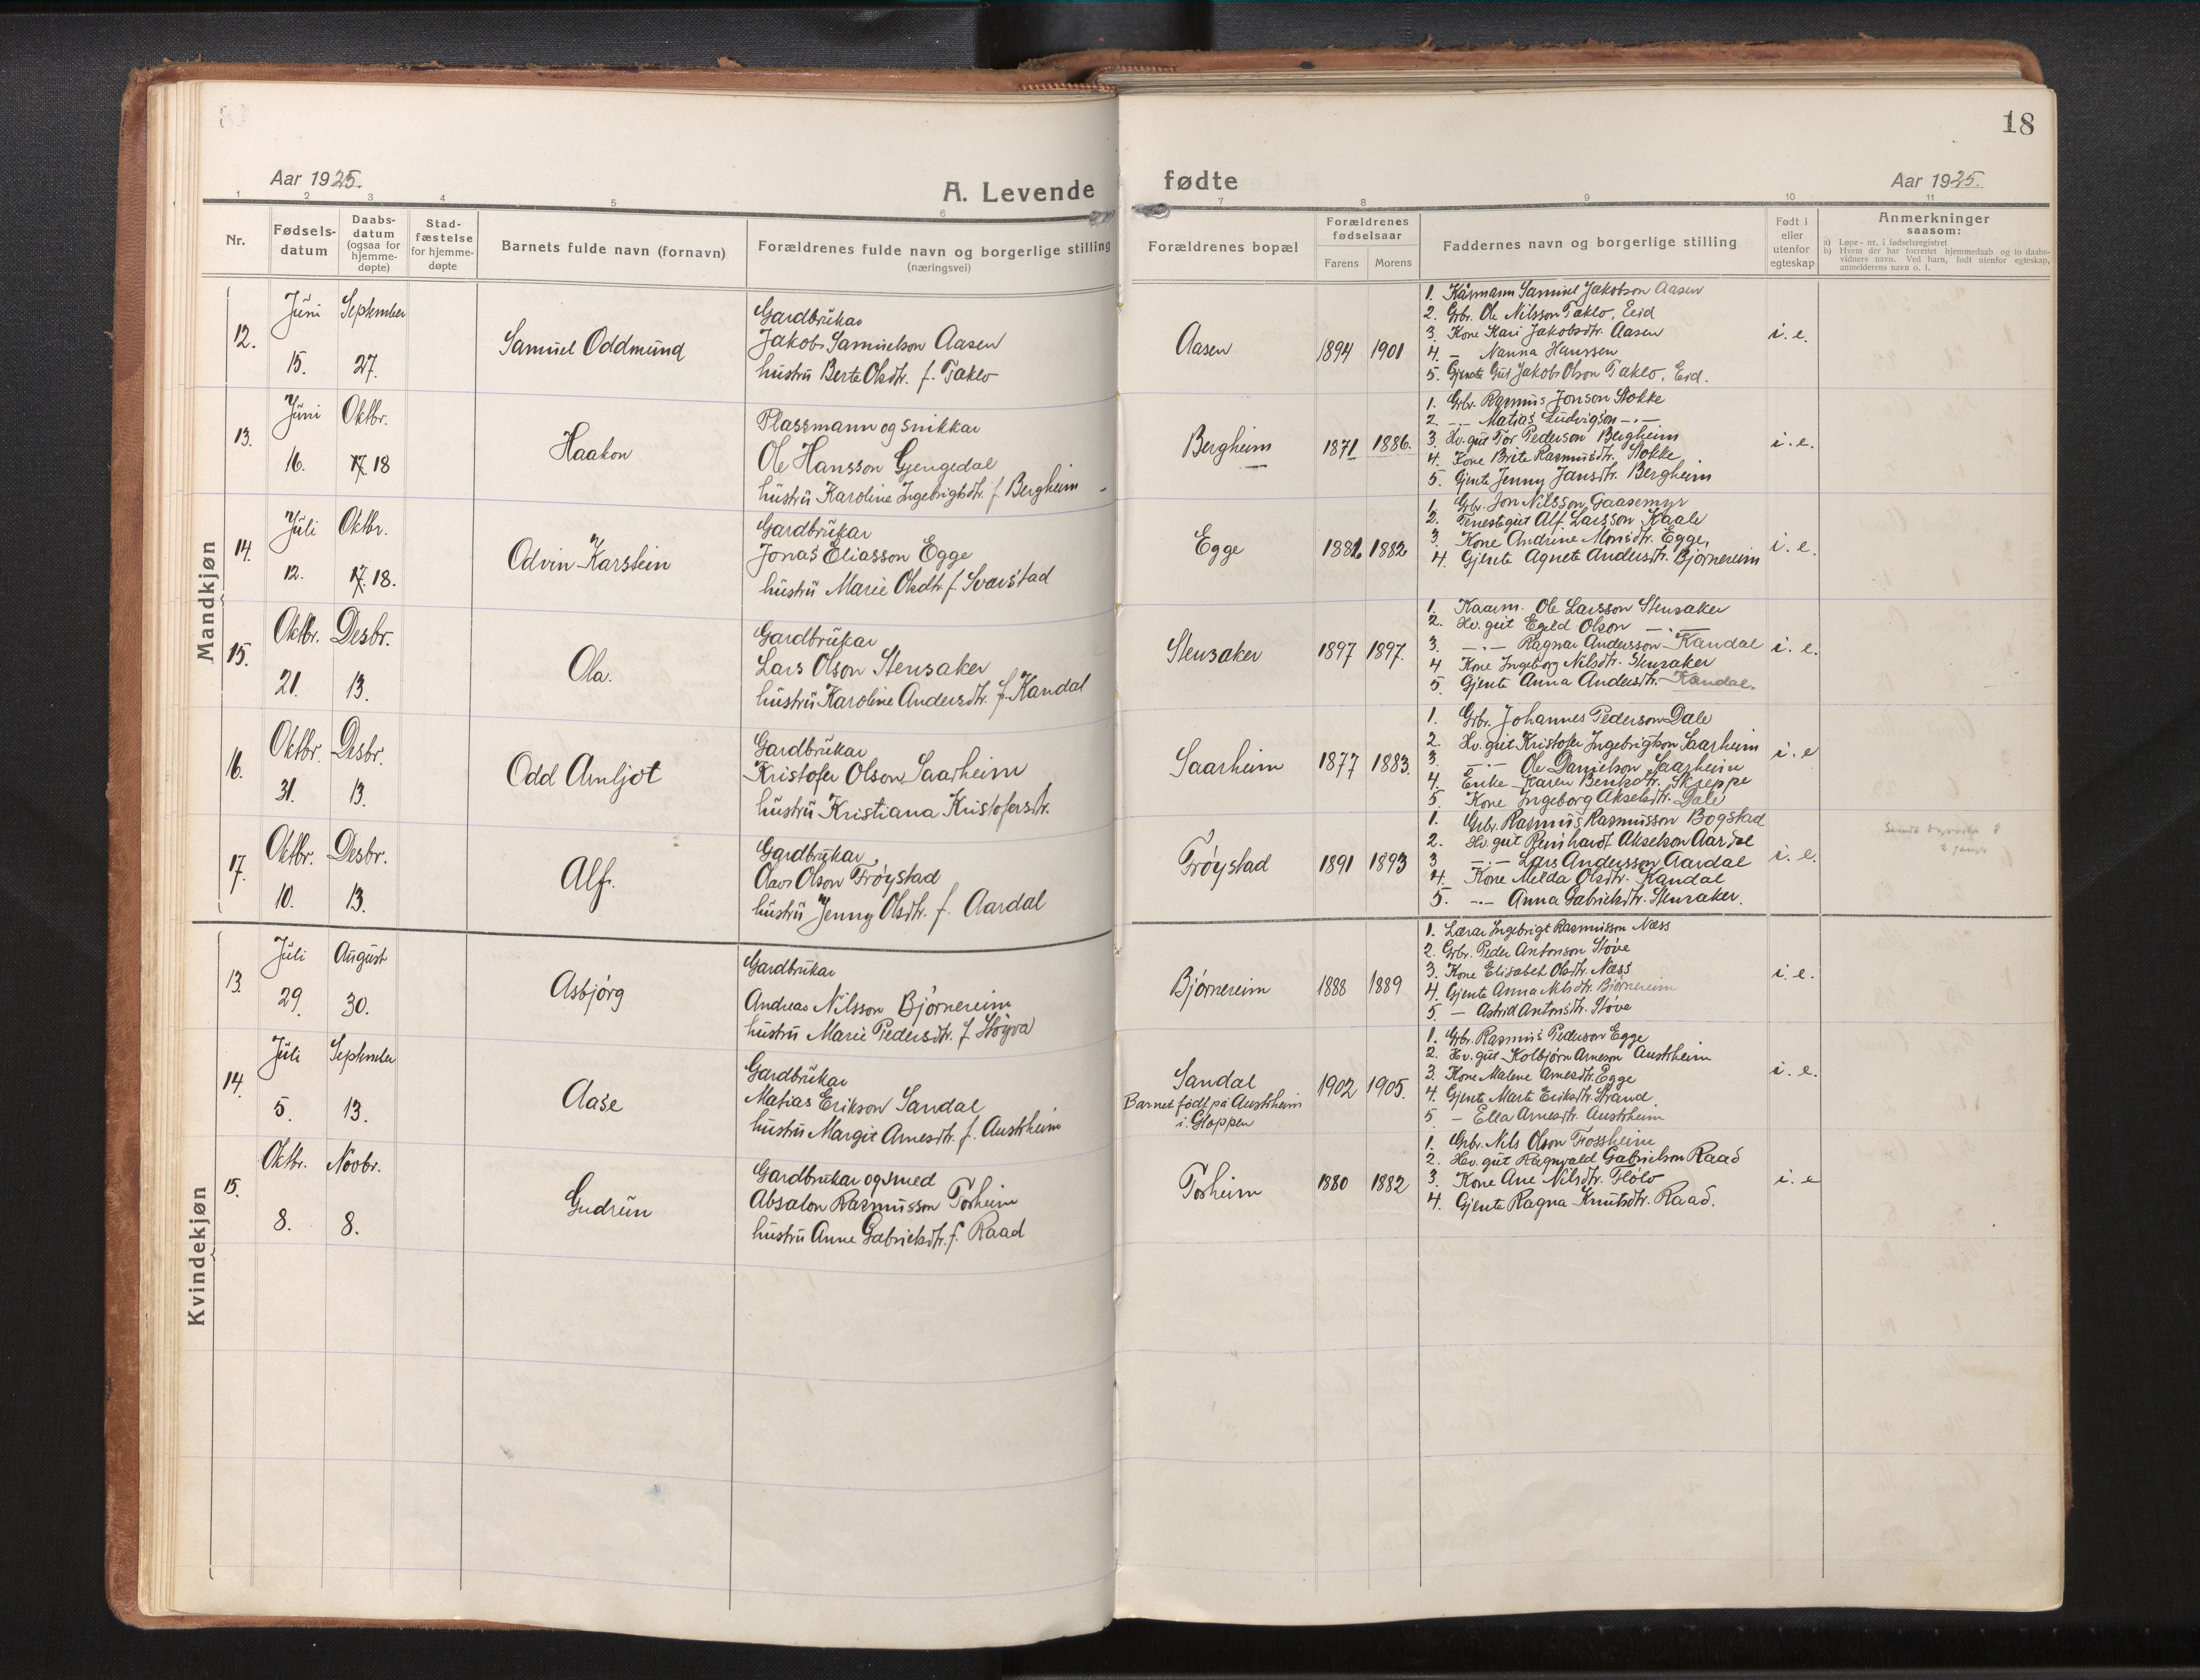 18
Aar 1925.
A. Levende
fødte
Aar 1925.
1 2 3 4 5 6 7 8 9 10 11
Nr.
Fødsels-
datum
Daabs-
datum
(ogsaa for
hjemme-
døpte)
Stad-
fæstelse
for hjemme-
døpte
Barnets fulde navn (fornavn)
Forældrenes fulde navn og borgerlige stilling
(næringsvei)
Forældrenes bopæl
Forældrenes
fødselsaar
Farens Morens
Faddernes navn og borgerlige stilling
Født i
eller
utenfor
egteskap
Anmerkninger
saasom:
a) Løpe-nr. i fødselsregistret
b) Hvem der har forrettet hjemmedaab og to daabs-
vidners navn. Ved barn, født utenfor egteskap,
anmelderens navn o. l.
Mandkjøn
12.
Juni September
15. 27.
Samuel Oddmund
Gardbrukar
Jakob Samuelson Aasen
hustru Berte Olsdtr. f. Taklo
Aasen
1894 1901
1. Kårmann Samuel Jakobson Aasen
2. Grbr. Ole Nilsson Taklo, Eid
3. Kone Kari Jakobsdtr. Aasen
4. — Nanna Hanssen
5. Gut Jakob Olson Taklo, Eid.
i. e.
13.
Juni Oktbr.
16. 17 18
Haakon
Plassmann og snikkar
Ole Hansson Gjengedal
hustru Karoline Ingebrigtsdtr. f. Bergheim
Bergheim
1871 1886.
1. Grbr. Rasmus Jonson Stokke
2. —.— Matias Ludvigson —.—
3. Hv. gut Tor Pederson Bergheim
4. Kone Brite Rasmusdtr. Stokke
5. Gjente Jenny Jansdtr. Bergheim
i. e.
14.
Juli Oktbr.
12. 17. 18.
Odvin Karstein
Gardbrukar
Jonas Eliasson Egge
hustru Marie Olsdtr. f. Svarstad
Egge
1881 1882
1. Grbr. Jon Nilsson Gaasemyr
2. Tenestegut Alf Larsson Kaale
3. Kone Andrine Monsdtr. Egge,
4. Gjente Agnete Andersdtr. Bjørnereim
i. e.
15.
Oktbr. Desbr.
21. 13.
Ola.
Gardbrukar
Lars Olson Stensaker
hustru Karoline Andersdtr. f. Kandal
Stensaker
1897 1897.
1. Kaarm. Ole Larsson Stensaker
2. Hv. gut Egild Olson —.—
3. —.— Ragnar Andersson Kandal
4 Kone Ingeborg Nilsdtr. Stensaker
5. Gjente Anna Andersdtr. Kandal.
i. e.
16.
Oktbr. Desbr.
31. 13.
Odd Arnljot
Gardbrukar
Kristofer Olson Saarheim
hustru Kristiana Kristofersdtr.
Saarheim
1877 1883.
1. Grbr. Johannes Pederson Dale
2. Hv. gut Kristofer Ingebrigtson Saarheim
3. —.— Ole Danielson Saarheim
4. Enke Karen Bentsdtr. Skjeppe
5. Kone Ingeborg Akselsdtr. Dale
i. e
17.
Oktbr. Desbr.
10. 13.
Alf.
Gardbrukar
Olav Olson Frøystad
hustru Jenny Olsdtr. f. Aardal
Frøystad
1891 1893
1. Grbr. Rasmus Rasmusson Bogstad
2. Hv. gut Reinhardt Akselson Aardal
3 —.— Lars Andersson Aardal
4. Kone Milda Olsdtr. Kandal
5. —.— Anna Gabrielsdtr. Stensaker.
i. e.
Kvindekjøn
13.
Juli August
29. 30.
Asbjørg
Gardbrukar
Andreas Nilsson Bjørnereim
hustru Marie Pedersdtr. f. Støyva
Bjørnereim
1888 1889
1. Lærar Ingebrigt Rasmusson Næss
2. Grbr. Peder Antonson Støve
3. Kone Elisabet Olsdtr. Næss
4. Gjente Anna Nilsdtr. Bjørnereim
5 — Astrid Antonsdtr. Støve
i. e.
14.
Juli September
5. 13.
Aase
Gardbrukar
Matias Erikson Sandal
hustru Margit Arnesdtr. f. Austrheim
Sandal
Barnet født på Austrheim
i. Gloppen
1902 1905.
1. Grbr. Rasmus Pederson Egge
2. Hv. gut Kolbjørn Arneson Austrheim
3. Kone Malene Arnesdtr. Egge
4. Gjente Marta Eriksdtr. Strand
5 — Ella Arnesdtr. Austrheim
i. e.
15.
Oktbr. Novbr.
8. 8.
Gudrun
Gardbrukar og smed
Absalon Rasmusson Torheim
hustru Anne Gabrielsdtr. f. Raad
Torheim
1880 1882
1. Grbr. Nils Olson Fossheim
2. Hv. gut Ragnvald Gabrielson Raad
3. Kone Ane Nilsdtr. Floto
4. Gjente Ragna Knutsdtr. Raad.
i. e